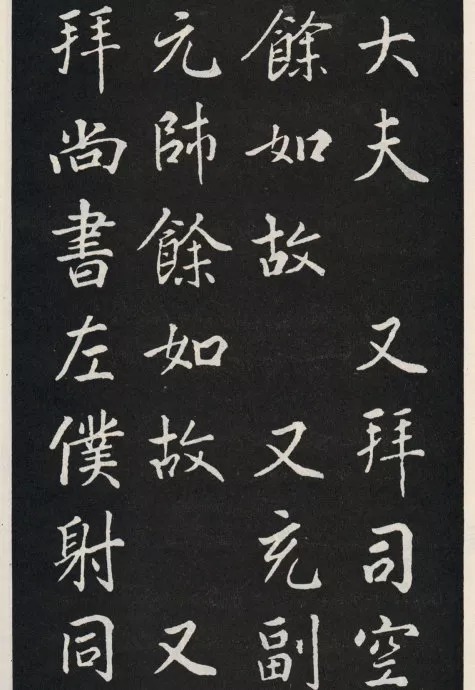 大夫 又拜司空
餘如故 又充副
元帥餘如故 又
拜尚書左僕射同